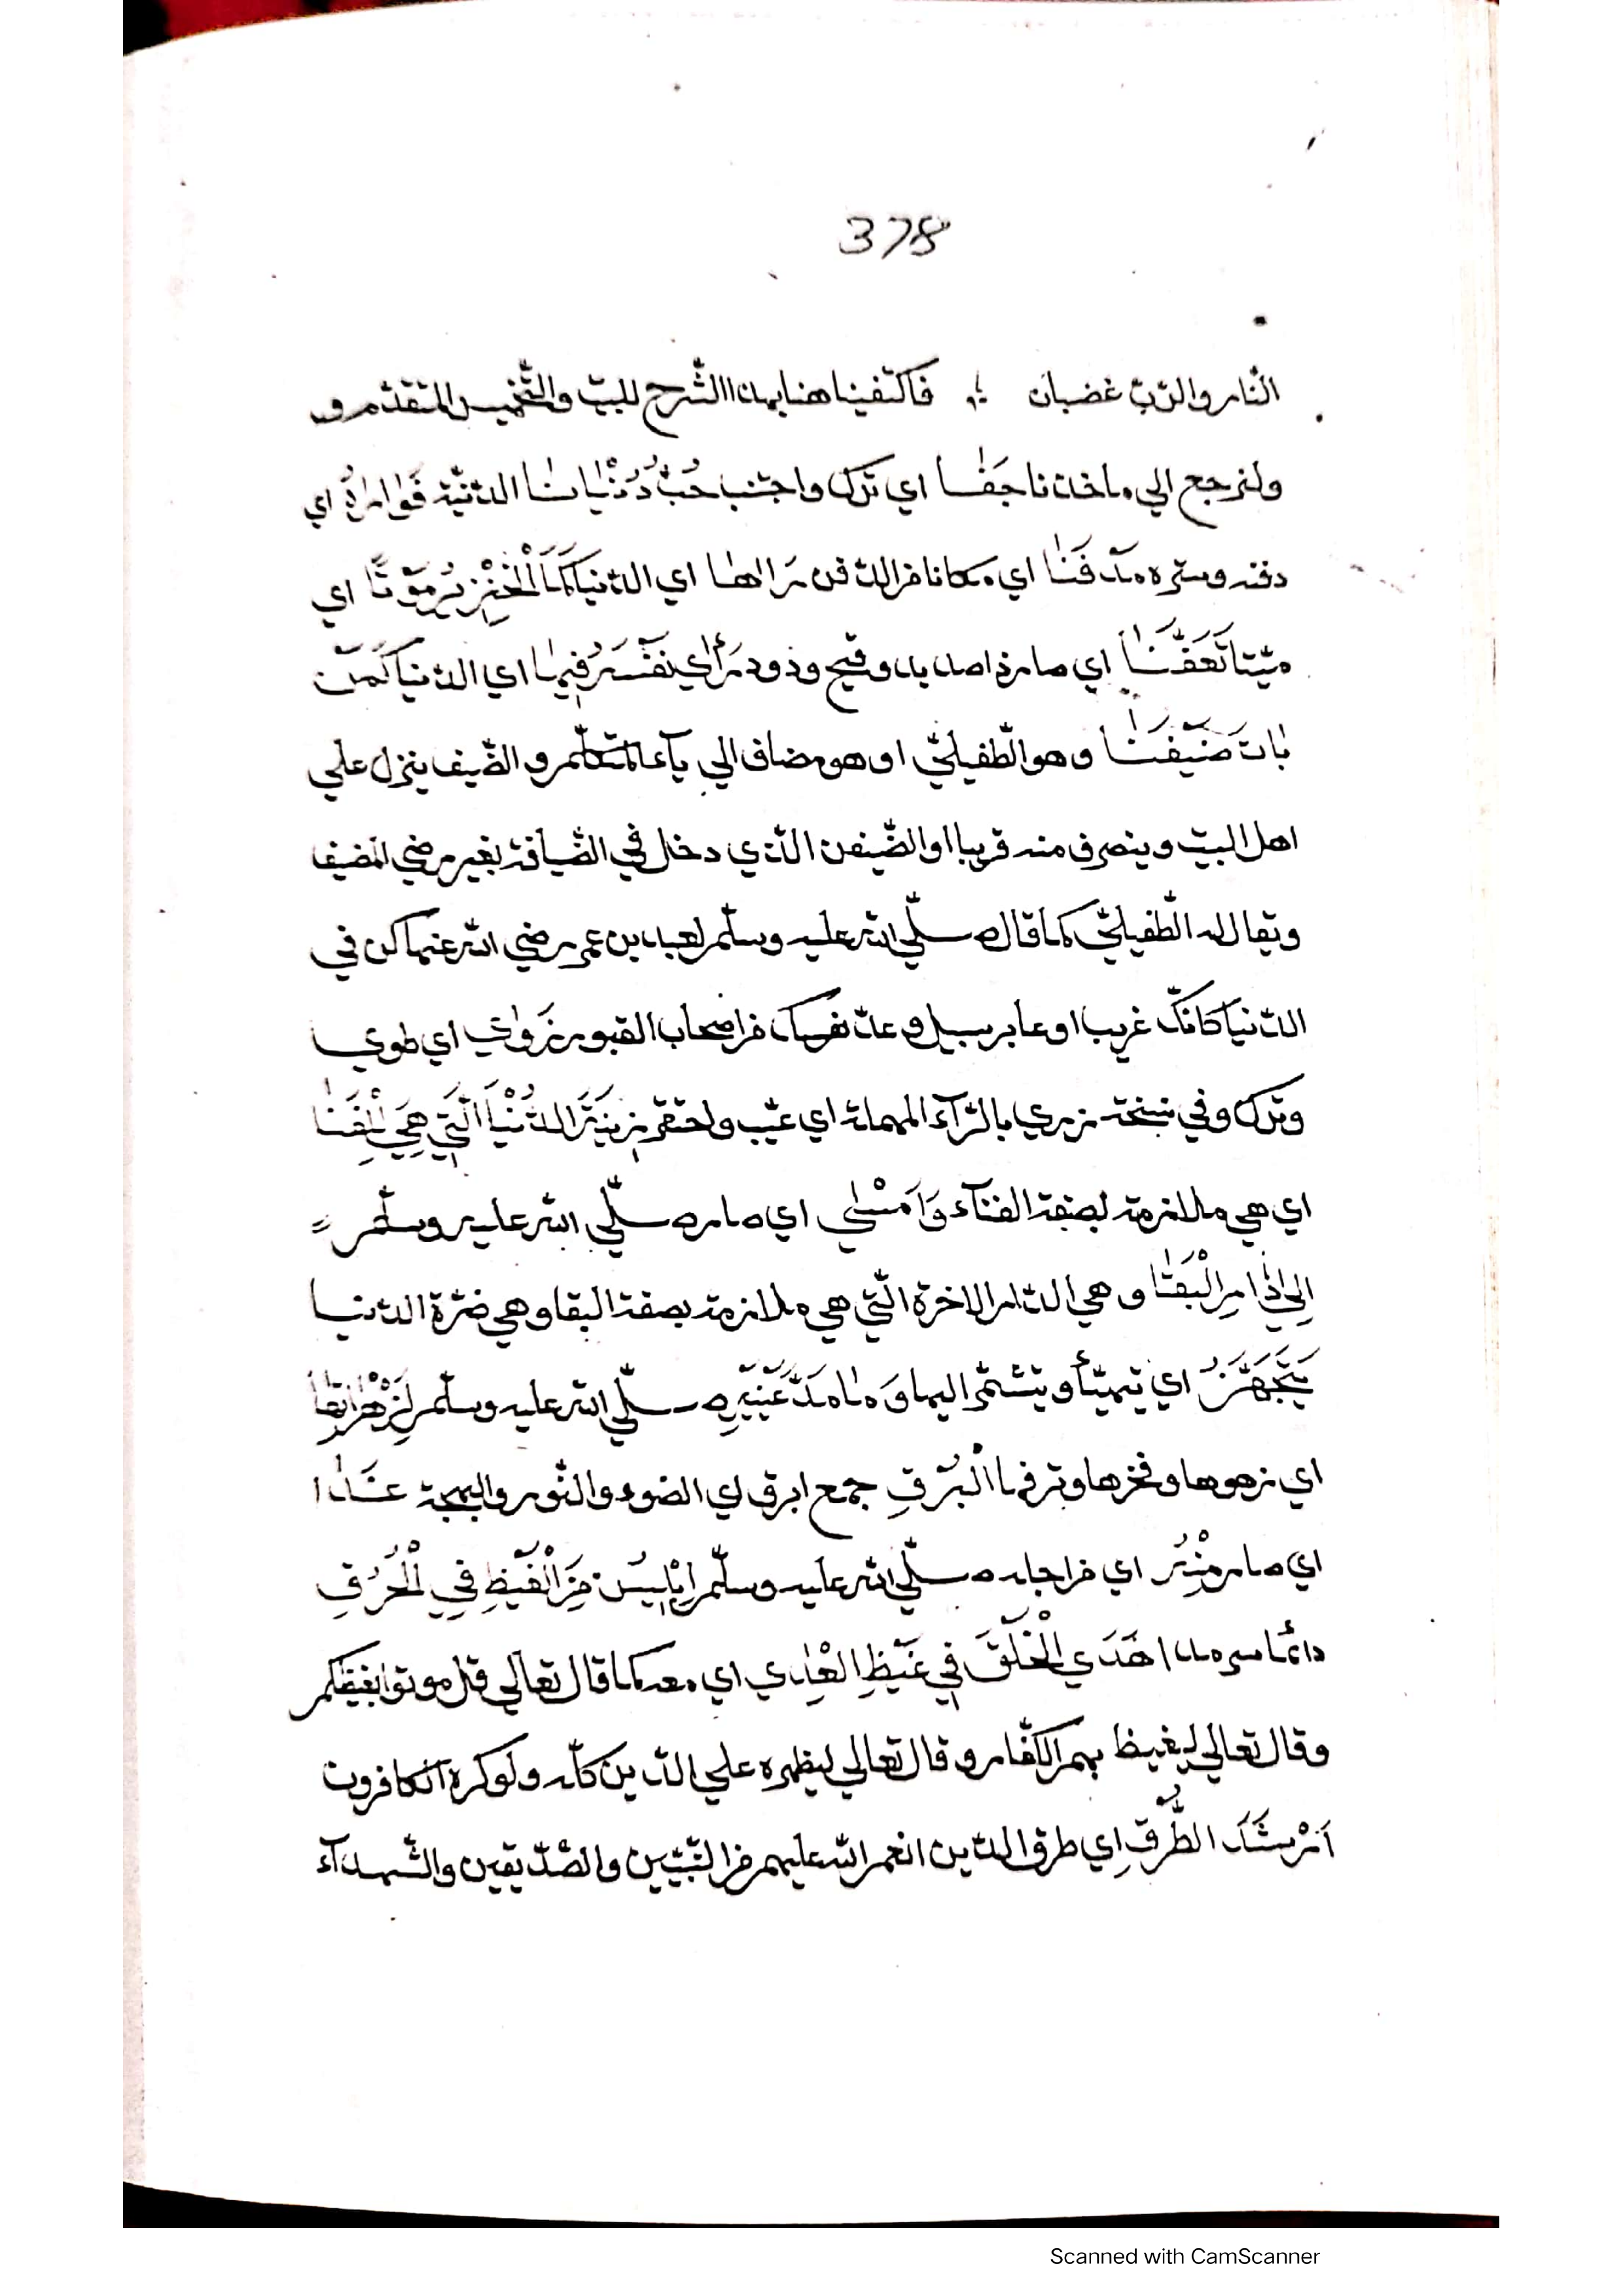 378
النار والرّبّ غضبان ؛ فاكتفينا هنا بهذا الشّرح للبيت والتّخميس المتقدّم و
ولنرجع الي ماخذنا جَفٰا اي ترك واجتنب حُبَّ دُنْيٰانٰا الدّنيّة فَوٰارٰاهُ اي
دفنه وستره مَدْفَنٰا اي مكانا من الدّفن رَاٰهٰا اي الدّنيا كَمَا الْخِنْزِيرُ مَوْتًا اي
ميّتا تَعَفَّنَاٰ اي صار ذا صديد وقيح ودود رَأٰي نَفْسَهُ فِيهٰا اي الدّنيا كَمَنْ
بٰاتَ ضَيْفَنٰا وهو الطّفيليّ او هو مضاف الي يآء المتكلّم والضّيف ينزل علي
اهل البيت وينصرف منه قريبا او الضّيفن الّذي دخل في الضّيافة بغير رضي المضيف
ويقال له الطّفيليّ كما قال صلّي الله عليه وسلّم لعبد بن عمر رضي الله عنهما كن في
الدّنيا كانّك غريب او عابر سبيل وعدّ نفسك من اصحاب القبور زَوٰي اي طوي
وترك وفي نسخة زري بالرّآء المهملة اي عيّب واحتقر زِينَةَ الدُّنْيَا الَّتِي هِيَ لِلْفَنٰا
اي هي ملازمة لصفة الفنآء وَاَمْسٰي اي صار صلّي الله عليه وسلّم
اِلٰي دٰارِ الْبَقٰا وهي الدّار الاخرة الّتي هي ملازمة بصفة البقا وهي ضرّة الدّنيا
يَتَجَهَّزُ اي يتهيّأ ويتشمّر اليها وَمٰا مَدَّ عَيْنَيْهِ صلّي الله عليه وسلّم لِزَهْرٰاتِهٰا
اي زهوها وفخرها وترفها الْبُرْقِ جمع ابرق اي الضوء والنّور والبهجة غَدٰا
اي صار مِنْهُ اي من اجله صلّي الله عليه وسلّم اِبْلِيسُ مِنَ الْغَيْظِ فِي الْحُرْقِ
دائما سرمدا هَدَي الْخَلْقَ فِي غَيْظِ الْعِدٰي اي معه كما قال تعالي قل موتوا بغيظكم
وقال تعالي ليغيظ بهم الكفّار وقال تعالي ليظهره علي الدّين كلّه ولو كره الكافرون
اَرْشَدَ الطُّرْقِ اي طرق الّذين انعم الله عليهم من النّبيّين والصّدّيقين والشّهدآء
Scanned with CamScanner